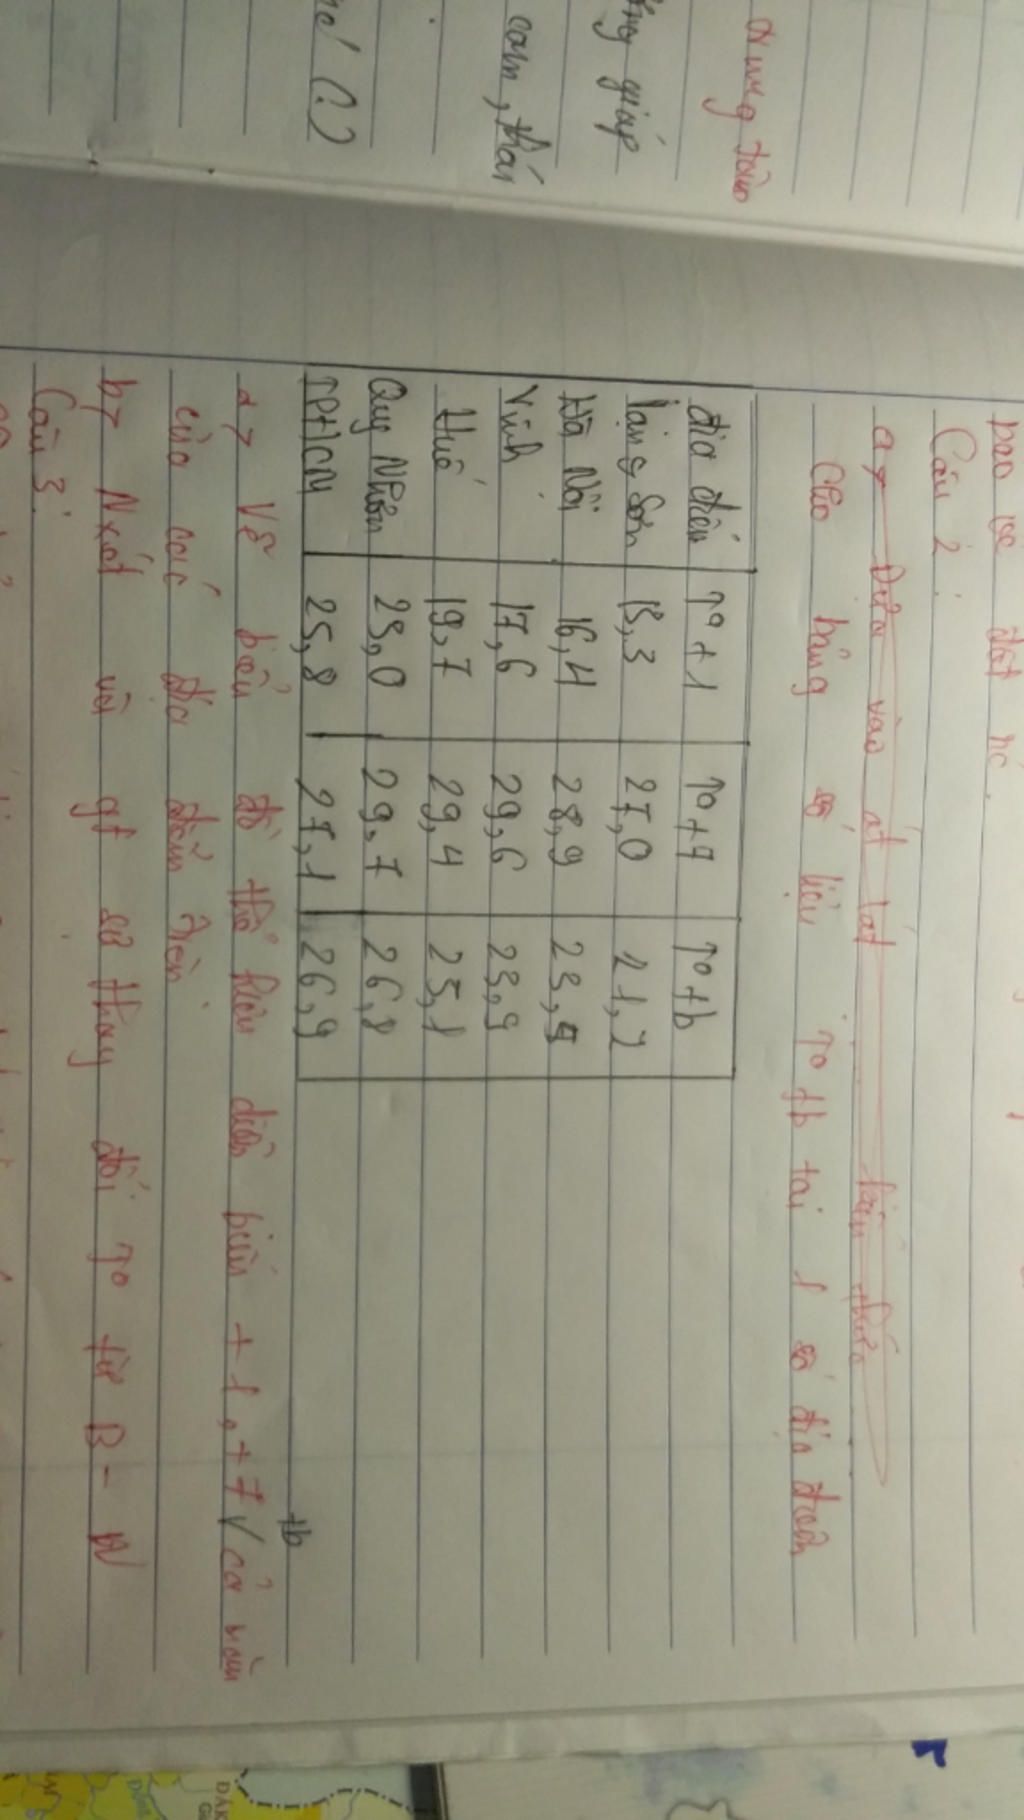 trung tâm
giáp
com, thái
Câu 2:
a, Dựa vào át lát kiến thức
Cho bảng số liệu To tb tại 1 số địa điểm
địa điểm To t1 To t7 To tb
Lạng Sơn 13,3 27,0 21,2
Hà Nội 16,4 28,9 23,5
Vinh 17,6 29,6 23,9
Huế 19,7 29,4 25,1
Quy Nhơn 23,0 29,7 26,8
TPHCM 25,8 27,1 26,9
a, Vẽ biểu đồ thể hiện diễn biến t1, t7 √ cả năm
tb
của các địa điểm trên.
b, Nxét và gt sự thay đổi To từ B - N
Câu 3:
ĐẮK